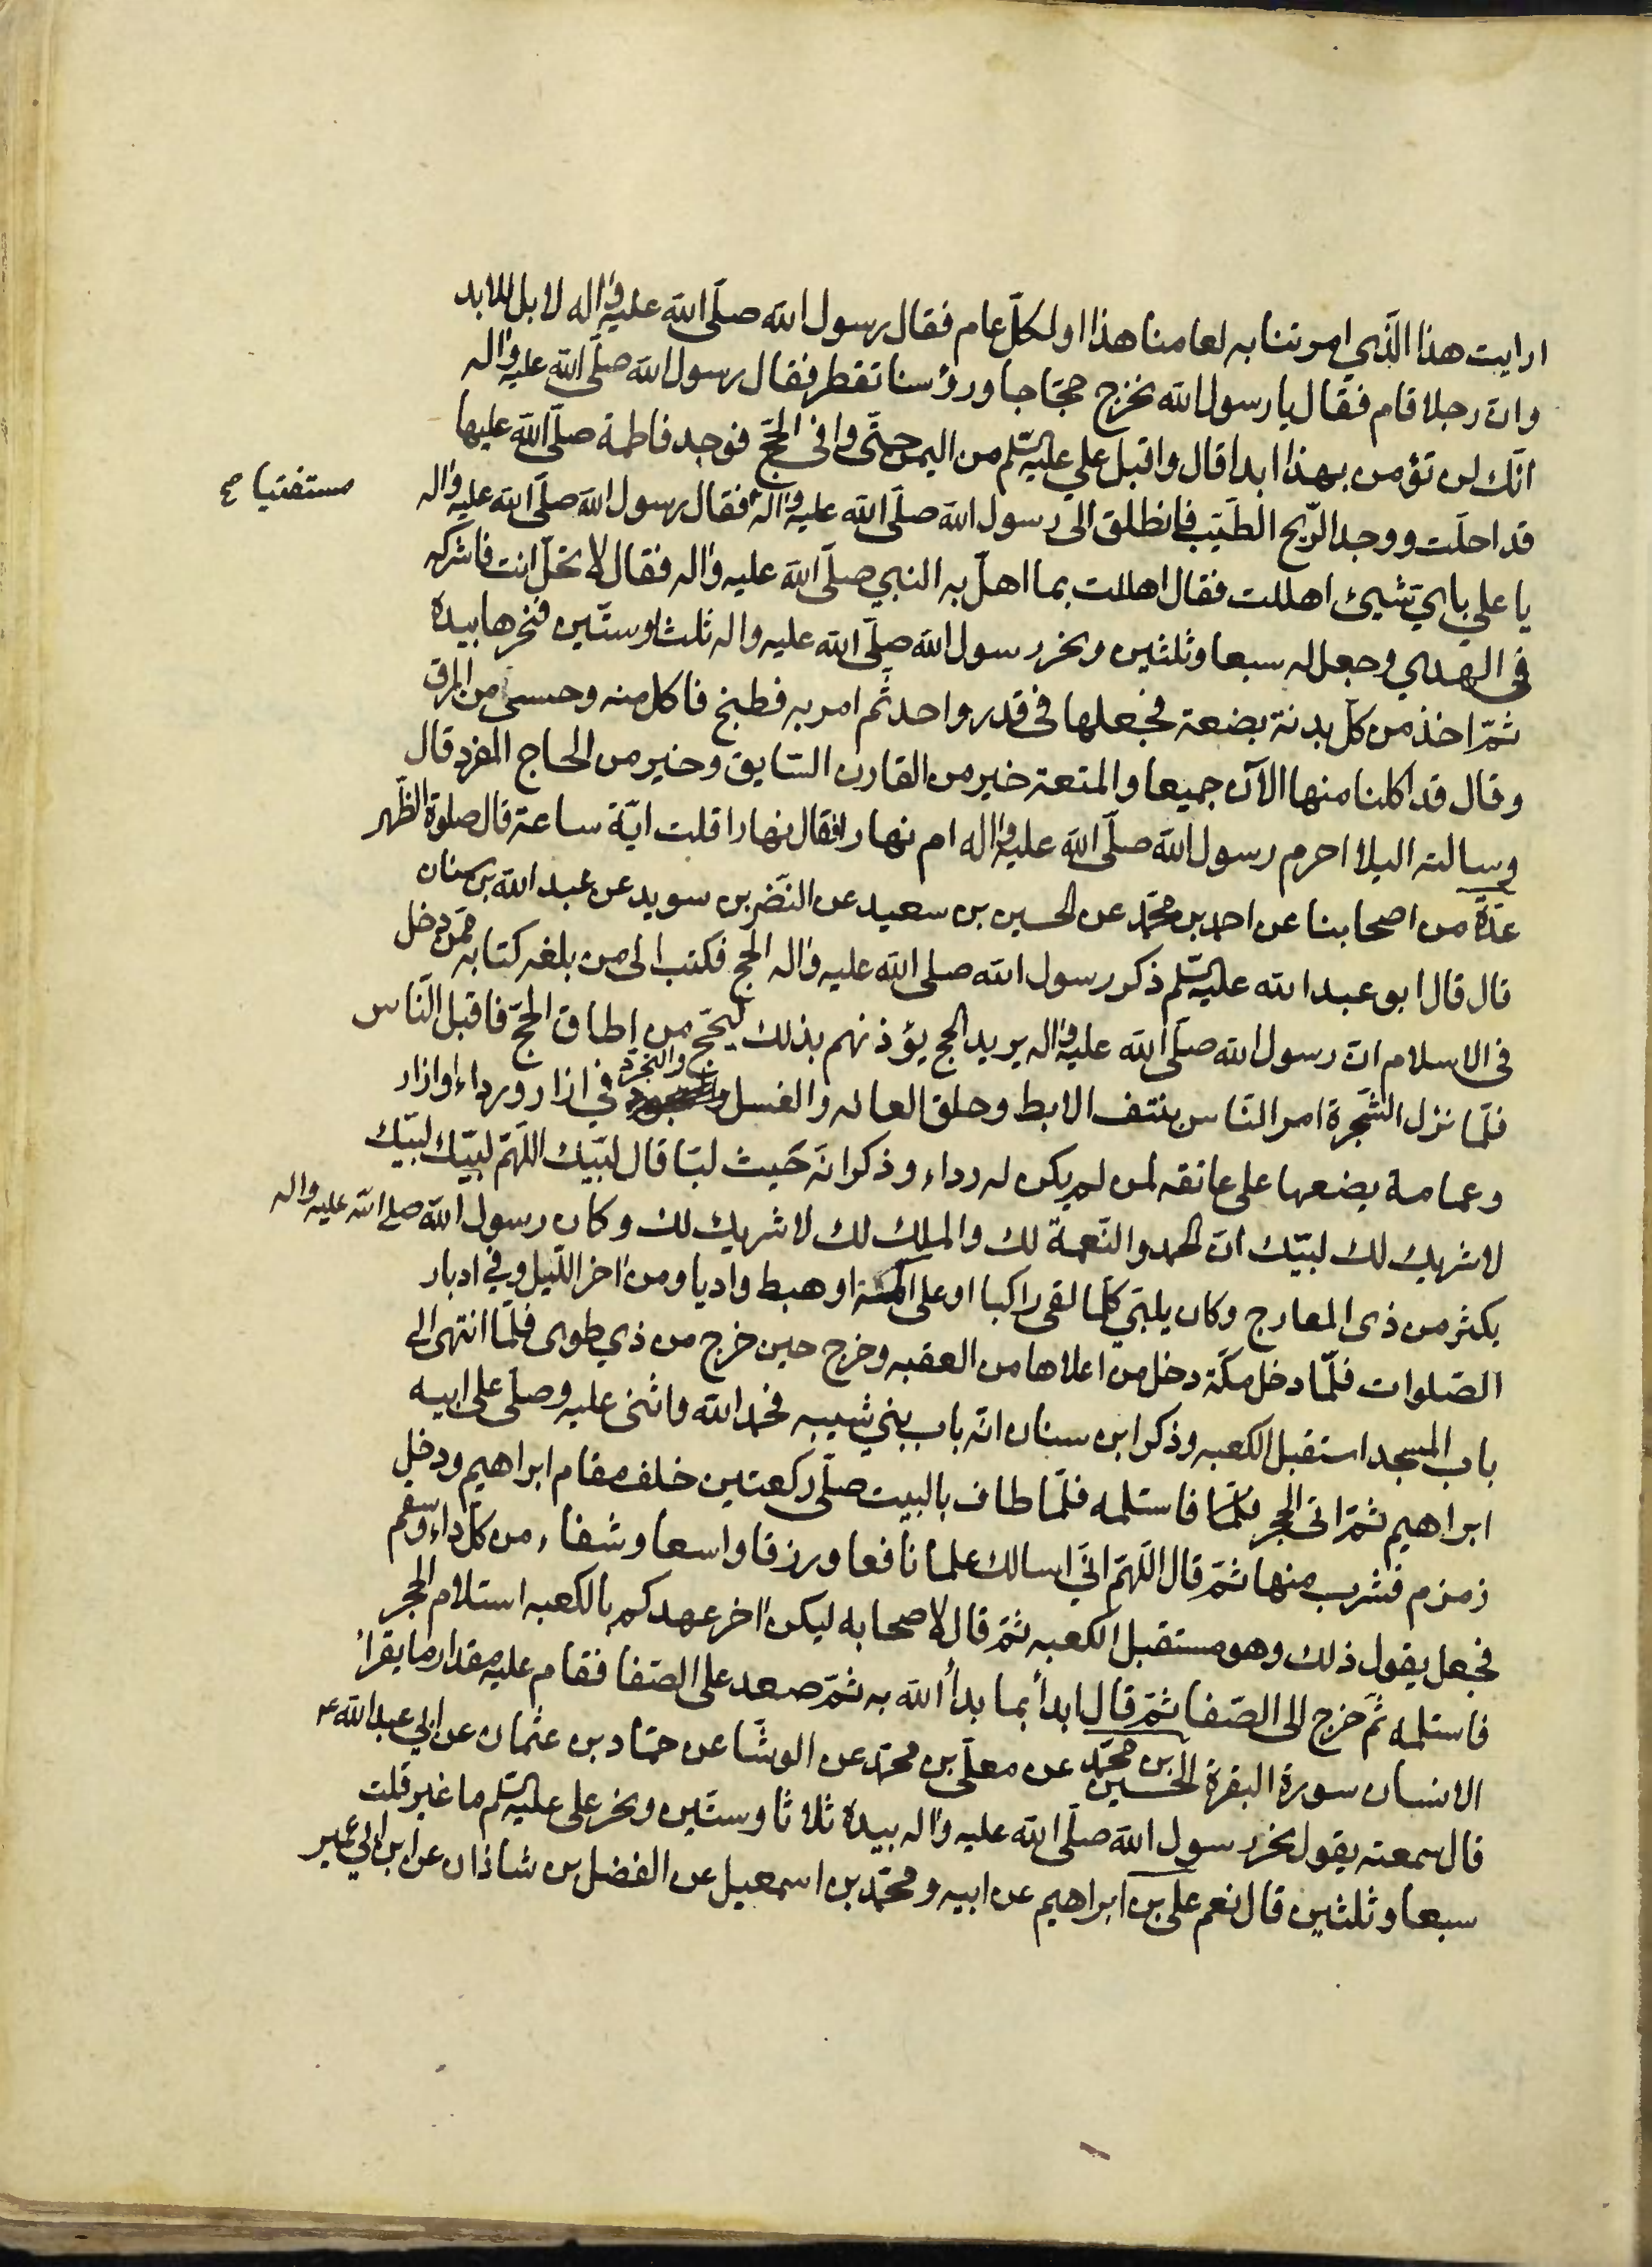 ارايت هذا الّذي امرتنا به لعامنا هذا اولكلّ عام فقال رسول الله صلّى الله عليه واله لا بل للابد
وان رجلا قام فقال يا رسول الله نخرج حجّاجا ورؤسنا تقطر فقال رسول الله صلّى الله عليه واله
انّك لن تؤمن بهذا ابدا قال واقبل علي عليه السّلم من اليمن حتّى وافى الحجّ فوجد فاطمة صلّى الله عليها
قد احلّت ووجد الرّيح الطيّب فانطلق الى رسول الله صلّى الله عليه واله فقال رسول الله صلّى الله عليه واله
مستفتيا صح
يا علي باىّ شيئ اهللت فقال اهللت بما اهلّ به النبي صلّى الله عليه واله فقال لا تحلّ انت فاشركه
في الهدي وجعل له سبعا وثلثين ونحر رسول الله صلّى الله عليه واله ثلثا وستّين فنحرها بيده
ثمّ اخذ من كلّ بدنة بضعة فجعلها في قدر واحد ثم امر به فطبخ فاكل منه وحسى من المرق
وقال قد اكلنا منها الآن جميعا والمتعة خير من القارن السّايق وخير من الحاج المفرد قال
وسالته اليلا احرم رسول الله صلّى الله عليه واله ام نهارا فقال نهارا قلت ايّة ساعة قال صلوة الظّهر
عدّة من اصحابنا عن احمد بن محمّد عن الحسين بن سعيد عن النّضر بن سويد عن عبد الله بن سنان
قال قال ابو عبد الله عليه السّلم ذكر رسول الله صلى الله عليه واله الحج فكتب الى من بلغه كتابه ممّن دخل
في الاسلام انّ رسول الله صلّى الله عليه واله يريد الحج يؤذنهم بذلك ليحّج من اطاق الحجّ فاقبل النّاس
فلمّا نزل الشّجرة امر النّاس بنتف الابط وحلق العانه والغسل والتجرّد في ازار ورداء اوازار
وعمامة يضعها على عاتقه لمن لم يكن له رداء وذكر انّه حيث لبّا قال لبّيك اللّهمّ لبّيك لبّيك
لا شريك لك لبّيك انّ الحمد والنّعمة لك والملك لك لا شريك لك وكان رسول الله صلى الله عليه واله
يكثر من ذى المعارج وكان يلبّي كلّما لقى راكبا او على اكمة او هبط واديا ومن اخر اللّيل وفي ادبار
الصّلوات فلمّا دخل مكّة دخل من اعلاها من العقبه وخرج حين خرج من ذي طوى فلمّا انتهى الى
باب المسجد استقبل الكعبه وذكر ابن سنان انّه باب بني شيبه فحمد الله واثنى عليه وصلّى على ابيه
ابراهيم ثمّ اتى الحجر فاستلمه فلمّا طاف بالبيت صلّى ركعتين خلف مقام ابراهيم ودخل
زمزم فشرب منها ثمّ قال اللّهمّ انّي اسالك علما نافعا ورزقا واسعا وشفاء من كلّ داء وسقم
فجعل يقول ذلك وهو مستقبل الكعبه ثمّ قال لاصحابه ليكن اخر عهدكم بالكعبه استلام الحجر
فاستلمه ثمّ خرج الى الصّفا ثمّ قال ابدأ بما بدأ الله به ثمّ صعد على الصّفا فقام عليه مقدار ما يقرا
الانسان سورة البقرة الحسين بن محمّد عن معلّى بن محمّد عن الوشّا عن حمّاد بن عثمان عن ابي عبد الله ع
قال سمعته يقول نحر رسول الله صلّى الله عليه واله بيده ثلاثا وستّين ونحر على عليه السّلم ما غبر قلت
سبعا وثلثين قال نعم على بن ابراهيم عن ابيه ومحمّد بن اسمعيل عن الفضل بن شاذان عن ابن ابي عمير